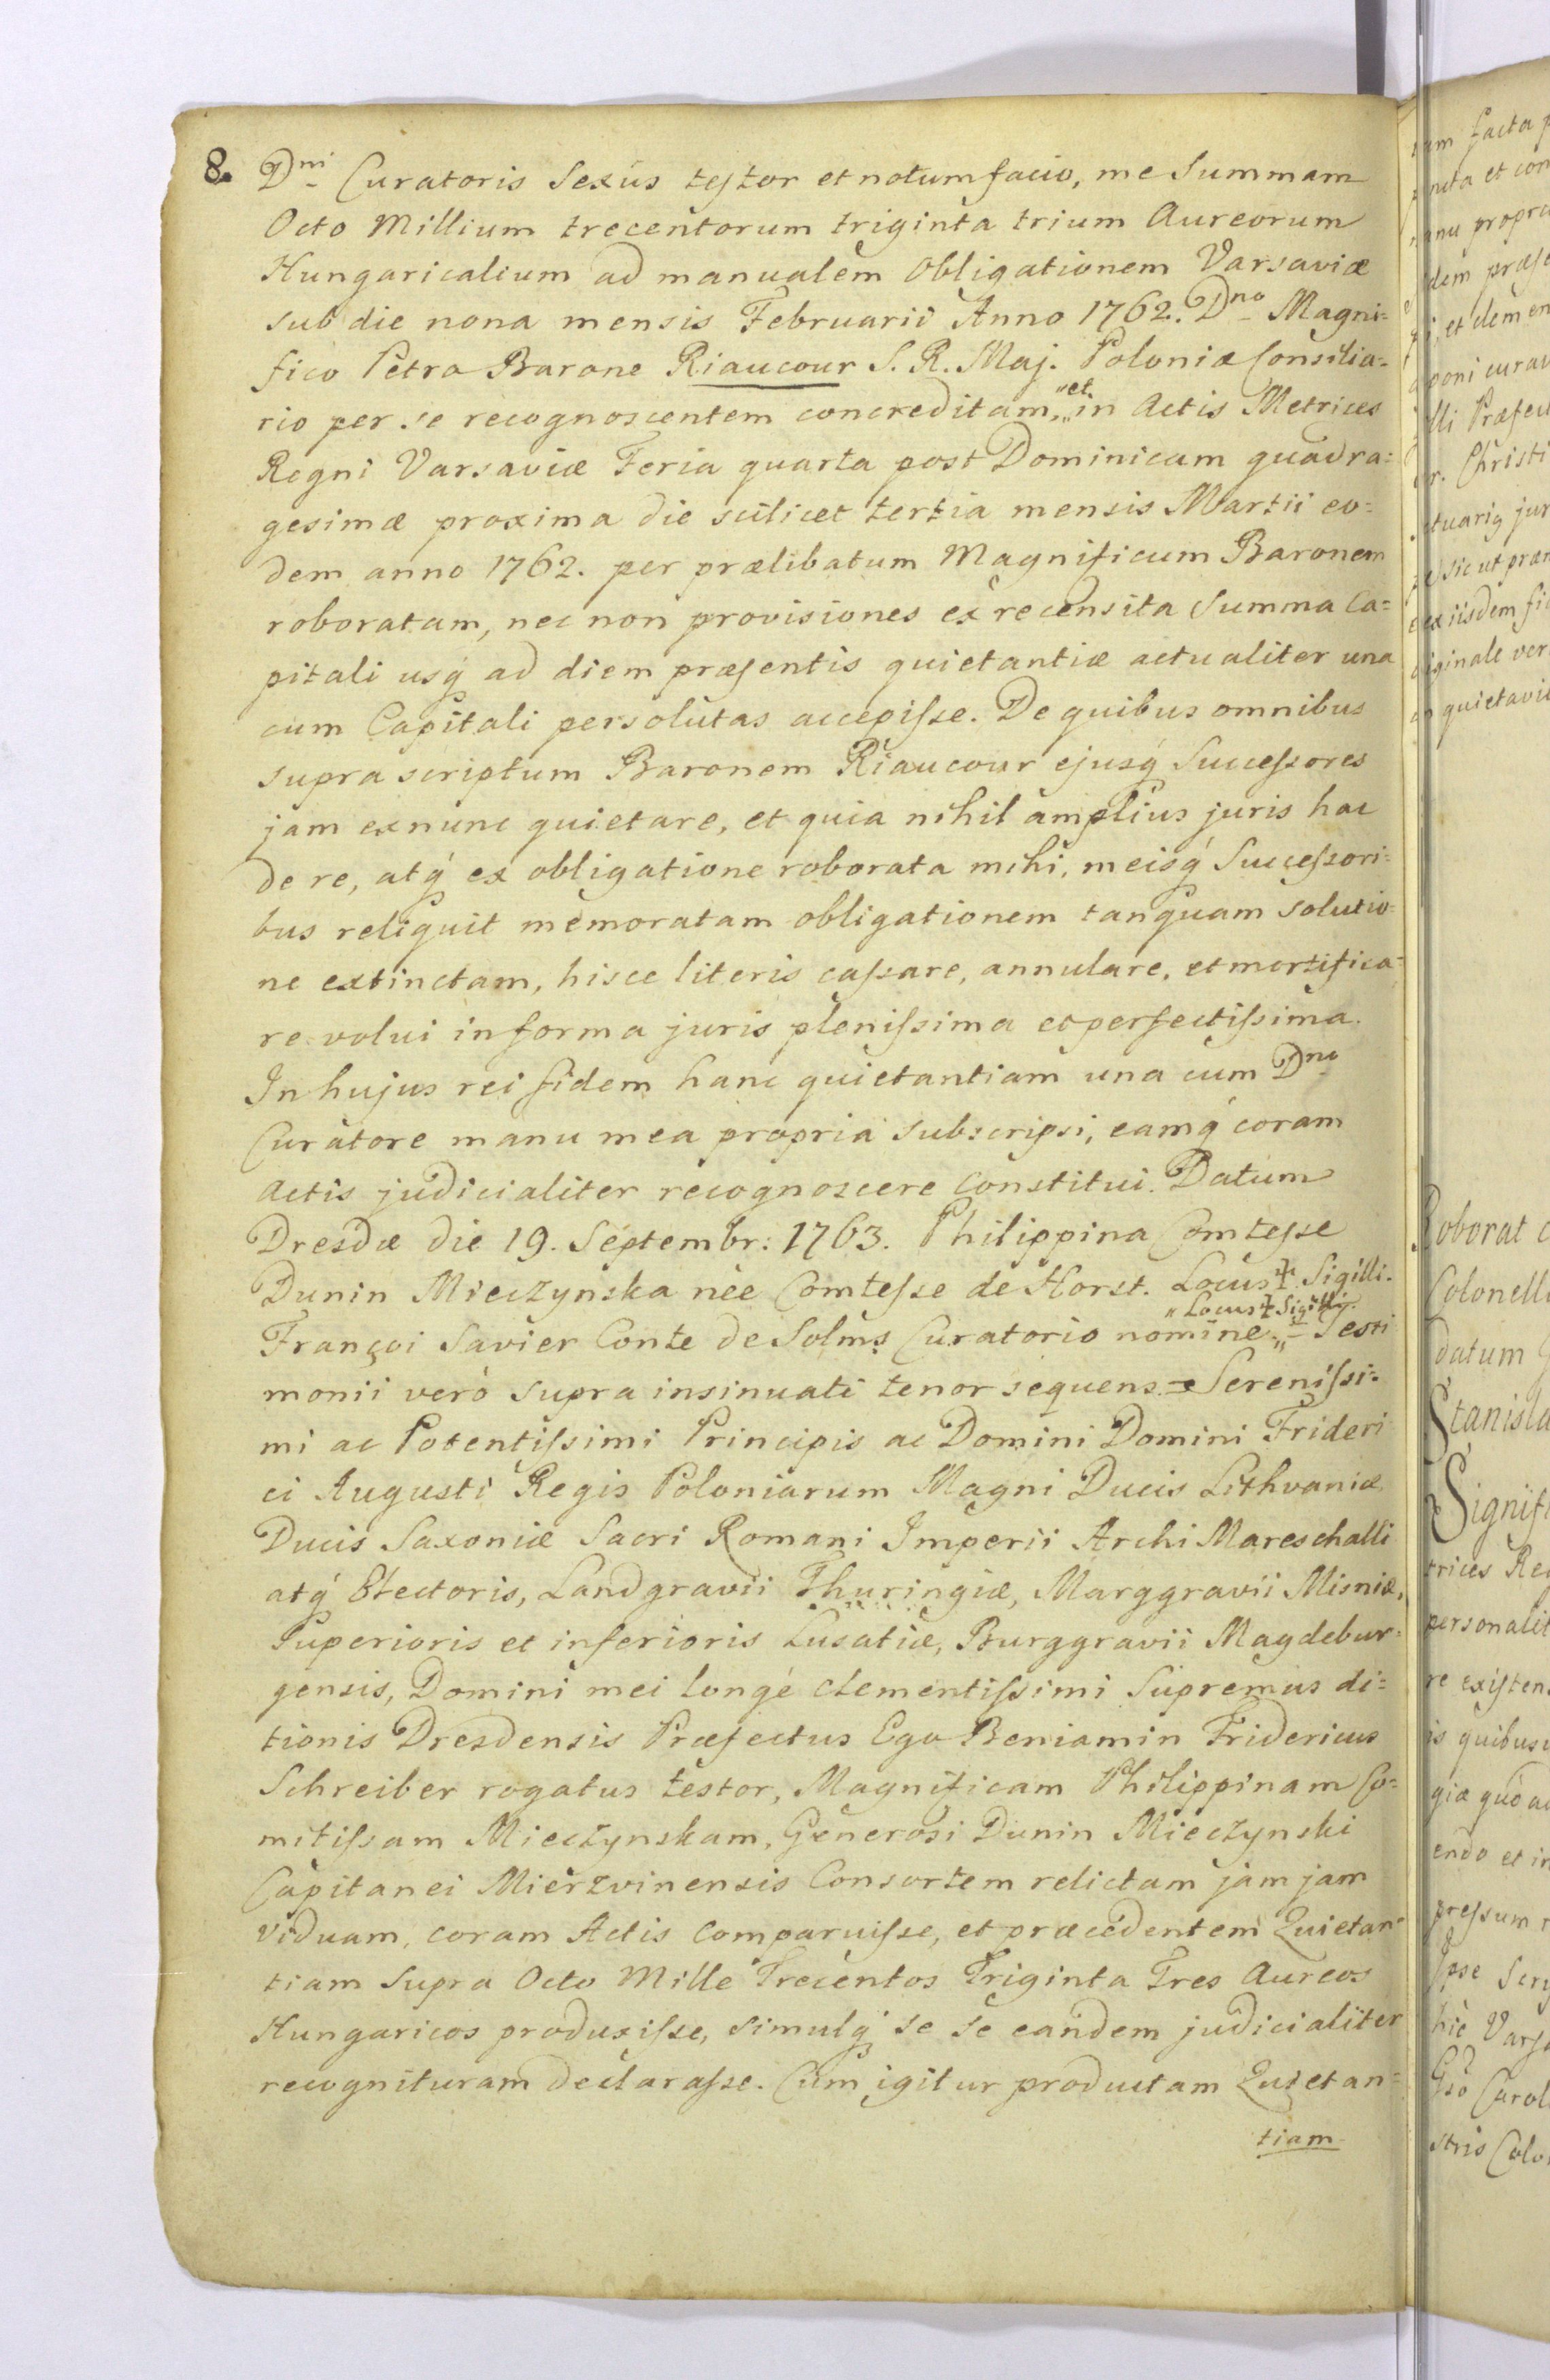 8.
Dni Curatoris Sexûs testor et notum facio, me Summam
Octo Millium trecentorum triginta trium Aureorum
Hungaricalium ad manualem Obligationem Varsaviæ
sub die nona mensis Februarii Anno 1762. Dno Magni=
fico Petro Barone Riaucour S. R. Maj. Poloniæ Consilia=
rio per se recognoscentem concreditam, „et„ in Actis Metrices
Regni Varsaviæ Feria quarta post Dominicam quadra=
gesimæ proxima die scilicet tertia mensis Martii eo=
dem anno 1762. per prælibatum Magnificum Baronem
roboratam, nec non provisiones ex recensita Summa Ca=
pitali usq́ ad diem præsentis quietantiæ actualiter una
cum Capitali persolutas accepiſse. De quibus omnibus
supra scriptum Baronem Riaucour ejusq́ Succeſsores
jam exnunc quietare, et quia nihil amplius juris hac
de re, atq́ ex obligatione roborata mihi, meisq́ Succeſsori=
bus reliquit memoratam obligationem tanquam solutio=
ne extinctam, hisce literis caſsare, annulare, et mortifica=
re volui in forma juris pleniſsima et perfectiſsima.
In hujus rei fidem hanc quietantiam una cum Dno
Curatore manu mea propria subscripsi, eamq́ coram
Actis judicialiter recognoscere constitui. Datum
Dresdæ die 19. Septembr: 1763. Philippina Comteſse
Dunin Mieczynska née Comteſse de Horst. Locus Sigilli.
„Locus Sigilli.
Françoi Savier Conte de Solms Curatorio nomine „= Testi
monii verò supra insinuati tenor sequens = Sereniſsi=
mi ac Potentiſsimi Principis ac Domini Domini Frideri
ci Augusti Regis Poloniarum Magni Ducis Lithvaniæ
Ducis Saxoniæ Sacri Romani Imperii Archi Mareschalli
atq́ Electoris, Landgravii Thuringiæ, Marggravii Misniæ,
Superioris et inferioris Lusatiæ, Burggravii Magdebur=
gensis, Domini mei longé clementiſsimi Supremus di=
tionis Dresdensis Præfectus Ego Beniamin Fridericus
Schreiber rogatus testor, Magnificam Philippinam Co=
mitiſsam Mieczynskam, Generosi Dunin Mieczynski
Capitanei Mierzvinensis Consortem relictam jam jam
viduam, coram Actis Comparuiſse, et præcedentem Quietan=
tiam Supra Octo Mille Trecentos Triginta Tres Aureos
Hungaricos produxiſse, simulq́ se se eandem judicialiter
recognituram declaraſse. Cùm igitur productam Quietan=
tiam